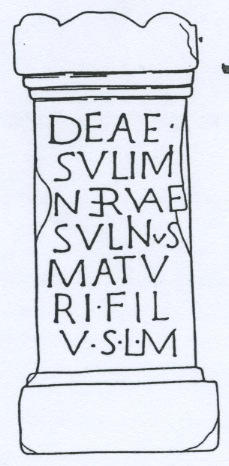 DEAE·
SVLIM
NERVAE
SVLNVS
MATV
RI·FIL
V·S·L·M